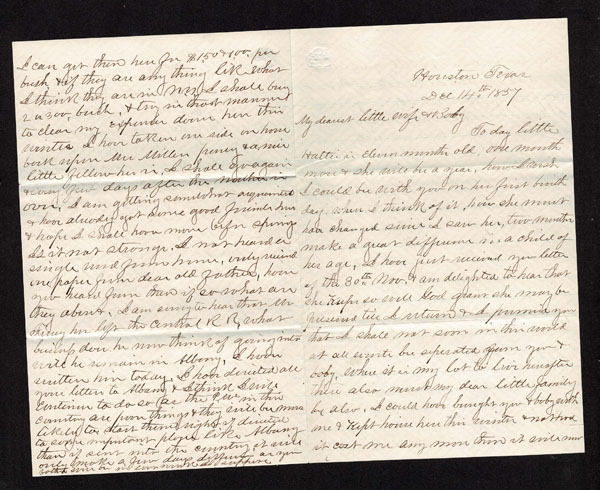 Houston Texas
Dec 14th 1857
My dearest little wife & Baby
To day little
Hattie is eleven months old, one month
more & she will be a year, how I wish
I could be with you on her first birth
day, when I think of it, how she must
have changed since I saw her, two months
make a great difference in a child of
her age, I have just received your letter
of the 30th Nov, & am delighted to hear that
she keeps so well God grant she may be
preserved till I return & I promise you
that I shall not soon in this world
at all events be seperated from you &
baby. Where it is my lot to live hereafter
there also must my dear little family
be also. I could have brought you & baby with
me & kept house here this winter & not had
it cost me any more than it will now
I can get them here for $150 & 100 per
bush & if they are any thing like what
I think they are in NY I shall buy
2 or 300 bush. & try in that manner
to clear my expenses down here this
winter I have taken one ride on horse
back upon Mr Millen poney & a nice
little fellow he is, I shall go again
every few days after the
over, I am getting somewhat acquainted
& have already got some good friends here
& hope I shall have more before spring
Is it not strange, I not heard a
single word from home, only received
one paper from dear old father, have
you heard from them if so what are
they about, I am sorry to hear that Mr
has left the Central R R, what
business does he now think of going into
will he remain in Albany, I have
written him today. I have directed all
your letters to Albany & I think I will
continue to do so as the P.O. in this
country are poor things & they will be more
likely to start them right if directed
to some important place like Albany
than if sent into the country, it will
only make a few days difference as you